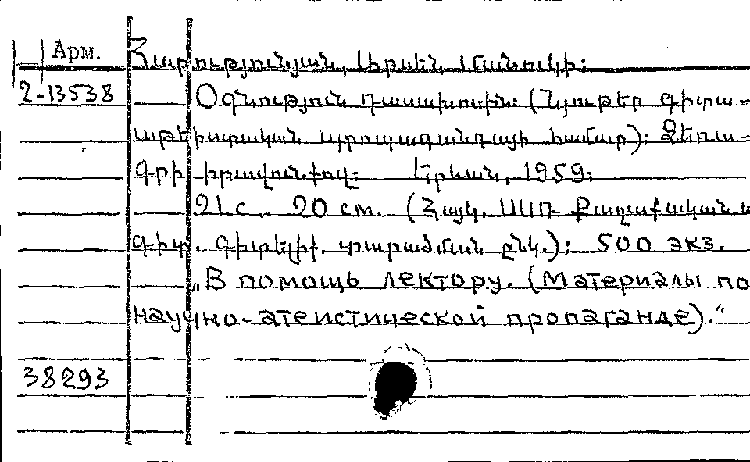 Арм.
Հարությունյան, Մանուկի:
2-13538
Օգնություն դասախոսին: (Նյութեր գիտա-
աթեիստական պրոպագանդայի համար): Ձեռա-
գրի իրավունքով: Երևան, 1959:
21 с. 20 см. (Հայկ. ՍՍՌ Քաղաքական և
գիտ. գիտելիք. տարածման ընկ.): 500 экз.
„В помощь лектору. (Материалы по
научно-атеистической пропаганде).“
38293